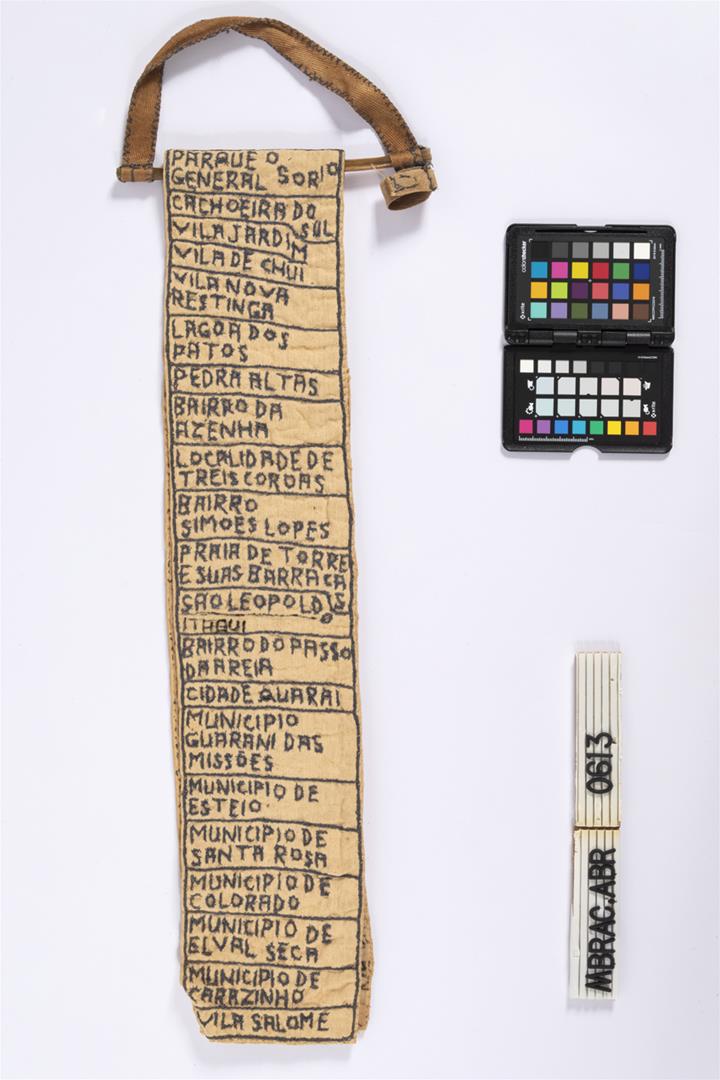 PARQUE O
GENERAL SORIO
CACHOEIRA DO
SUL
VILA JARDIM
VILA DE CHUI
VILA NOVA
RESTINGA
LAGOA DOS
PATOS
PEDRA ALTAS
BAIRRO DA
AZENHA
LOCALIDADE DE
TREIS COROAS
BAIRRO
SIMOES LOPES
PRAIA DE TORRE
E SUAS BARRACA
SAO LEOPOLDO
ITAQUI
BAIRRO DO PASSO
DA AREIA
CIDADE QUARAI
MUNICIPIO
GUARANI DAS
MISSÕES
MUNICIPIO DE
ESTEIO
MUNICIPIO DE
SANTA ROSA
MUNICIPIO DE
COLORADO
MUNICIPIO DE
ELVAL SECA
MUNICIPIO DE
CARAZINHO
VILA SALOME
colorchecker
x-rite
MBRAC.ABR 0613